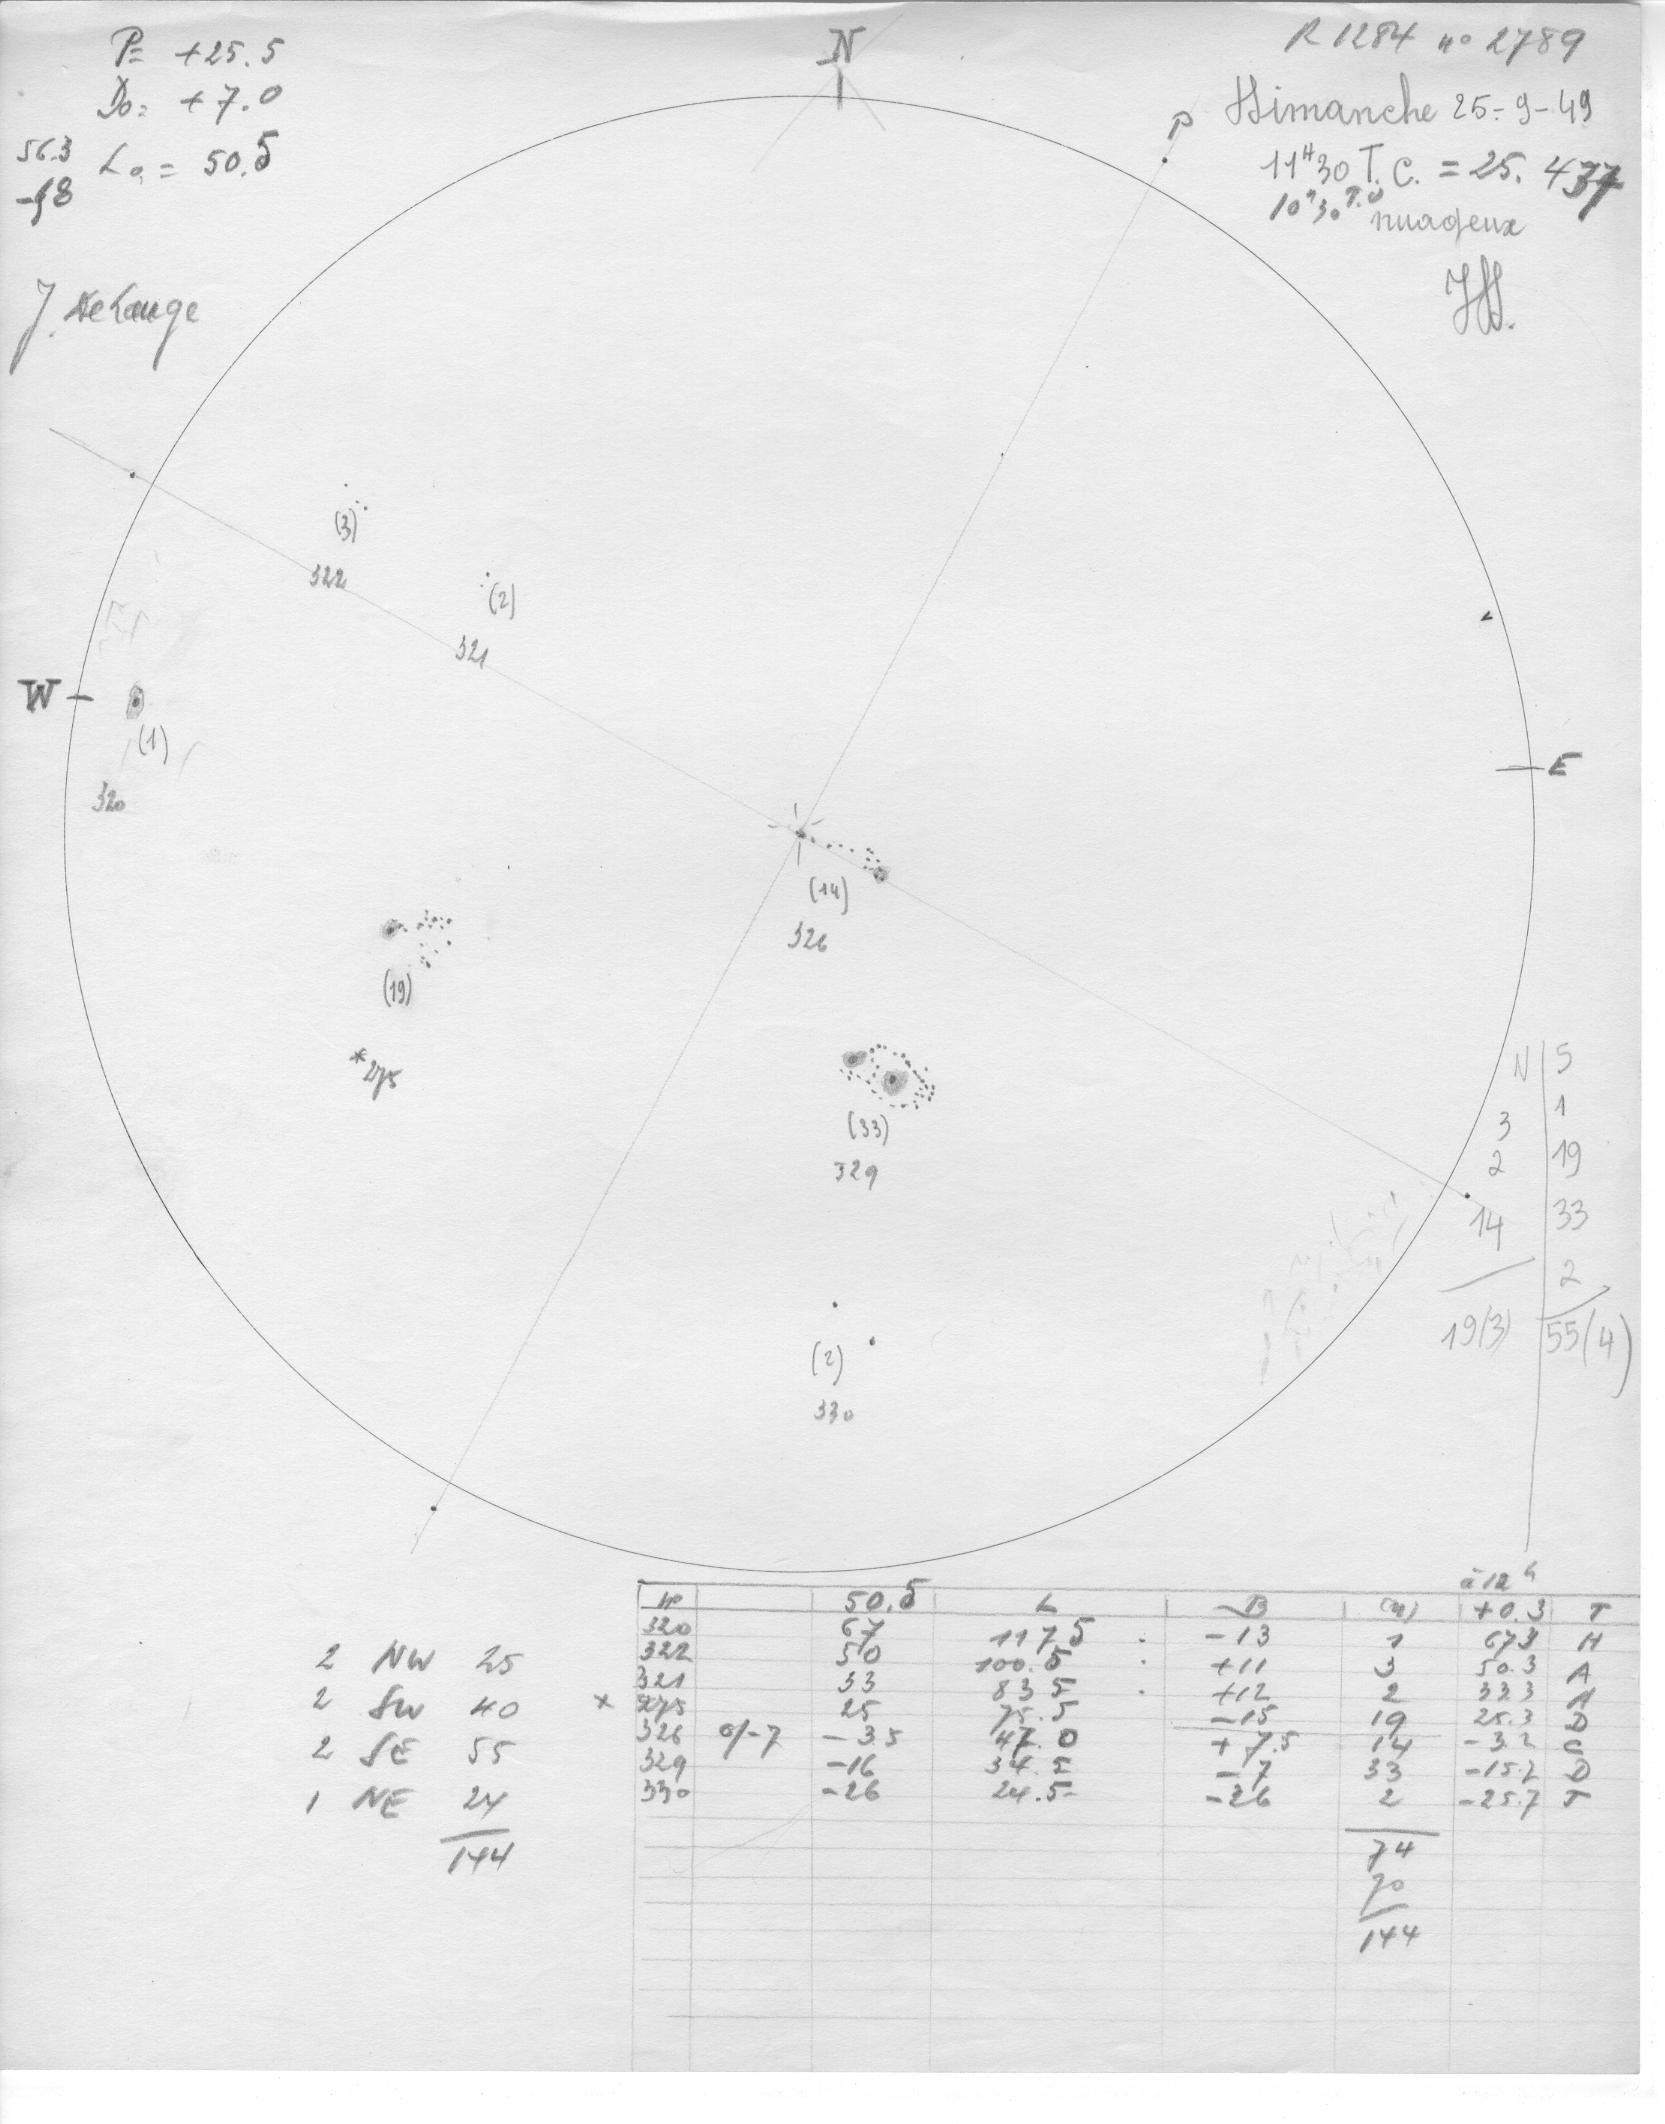 P= +25.5
Do= +7.0
56.3 Lo= 50.5
N
R 1284 nº 2789
Dimanche 25-9-49
11H30 T.C. = 25.437
10h30 T.U
nuageux
P
(3)
322
(2)
321
W
(1)
320
E
(14)
326
(19)
*275
(33)
329
(2)
330
N 5
3 1
2 19
14 33
2
19(3) 55(4)
à 12h
Nº 50.5 L B (n) +0.3 T
320 67 117.5 -13 1 67.3 H
322 50 100.5 +11 3 50.3 A
321 33 83.5 +12 2 33.3 A
x 275 25 75.5 -15 19 25.3 D
326 -3.5 47.0 +7.5 14 -3.2 C
329 -16 34.5 -7 33 -15.7 D
330 -26 24.5 -26 2 -25.7
74
70
144
2 NW 25
2 SW 40
2 SE 55
1 NE 24
144